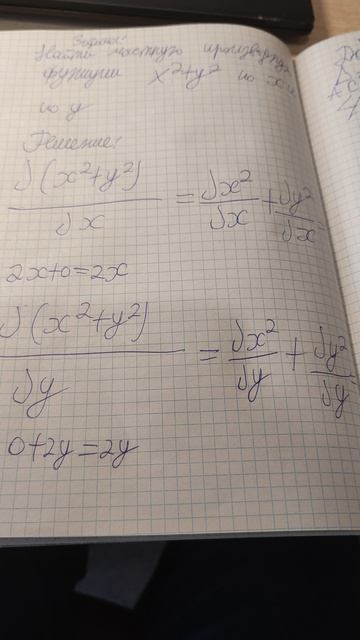 Задача:
Найти частную производную
функции x²+y² по x и
по y
Решение:
∂(x²+y²)/∂x = ∂x²/∂x + ∂y²/∂x
2x+0=2x
∂(x²+y²)/∂y = ∂x²/∂y + ∂y²/∂y
0+2y=2y